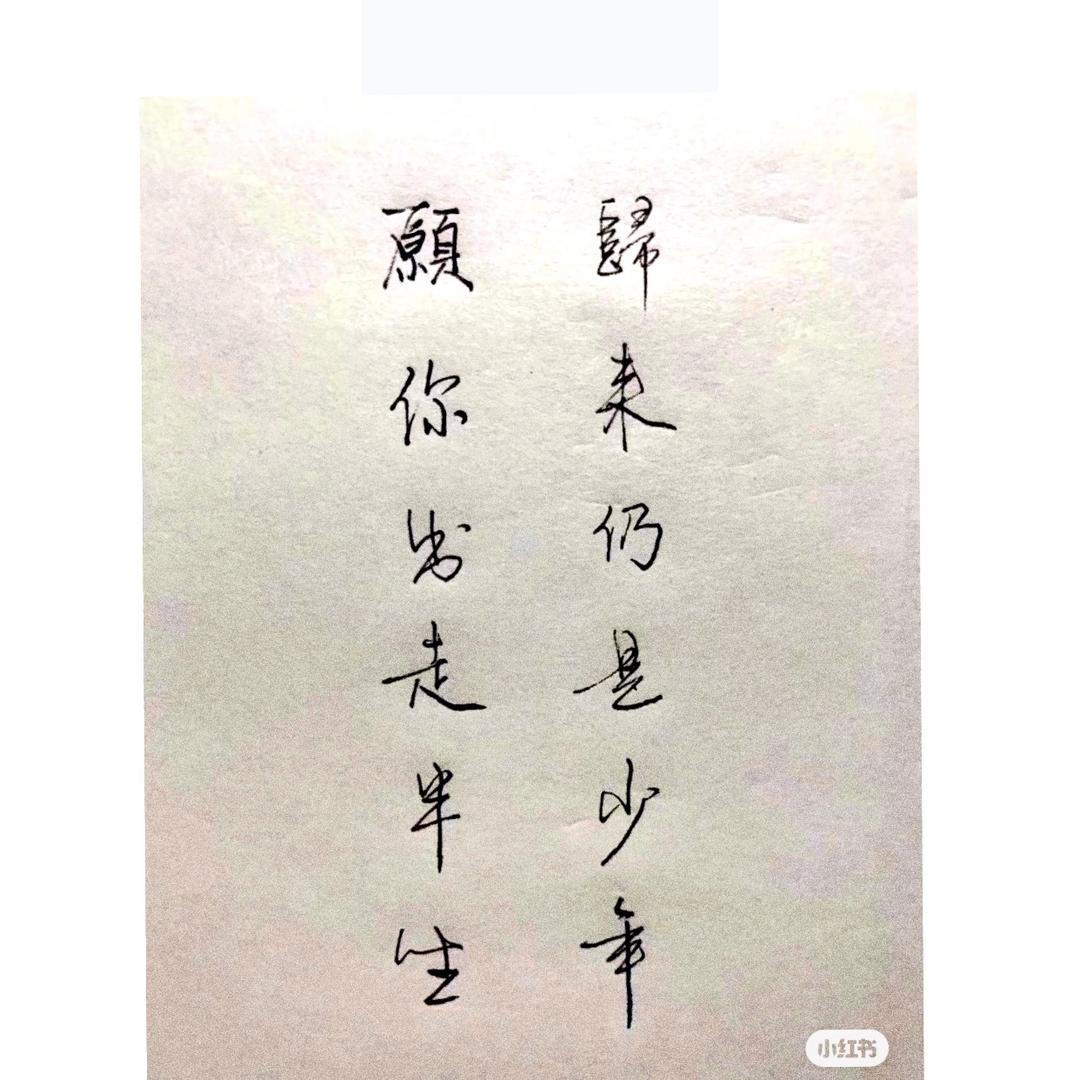 願你出走半生
歸来仍是少年
小红书